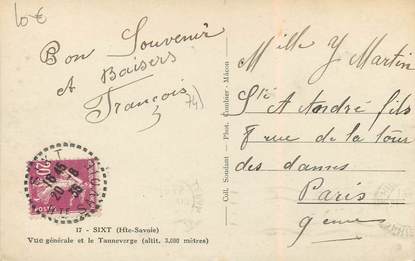 10€
Bon Souvenir
et Baisers
François
74)
17 - SIXT (Hte-Savoie)
Vue générale et le Tanneverge (altit. 3,000 mètres)
Coll. Soudant - Phot. Combier - Mâcon
Mlle Y Martin
Sté A André fils
8 rue de la tour
des dames
Paris
9ème